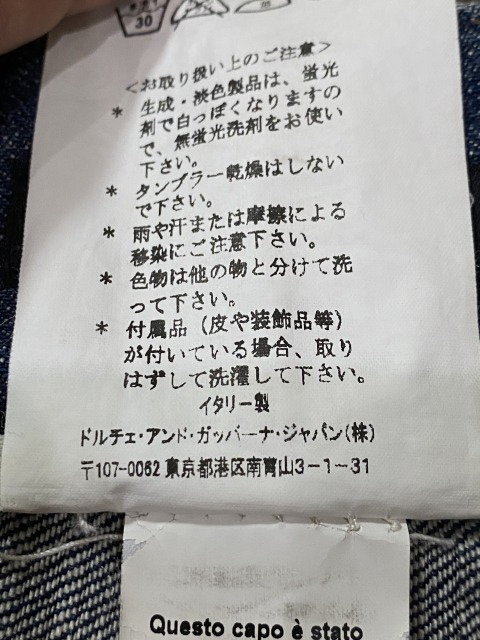 30
<お取り扱い上のご注意>
* 生成・淡色製品は、蛍光
剤で白っぽくなりますの
で、無蛍光洗剤をお使い
下さい。
* タンブラー乾燥はしない
で下さい。
* 雨や汗または摩擦による
移染にご注意下さい。
* 色物は他の物と分けて洗
って下さい。
* 付属品（皮や装飾品等）
が付いている場合、取り
はずして洗濯して下さい。
イタリー製
ドルチェ・アンド・ガッバーナ・ジャパン(株)
〒107-0062 東京都港区南青山3-1-31
Questo capo è stato